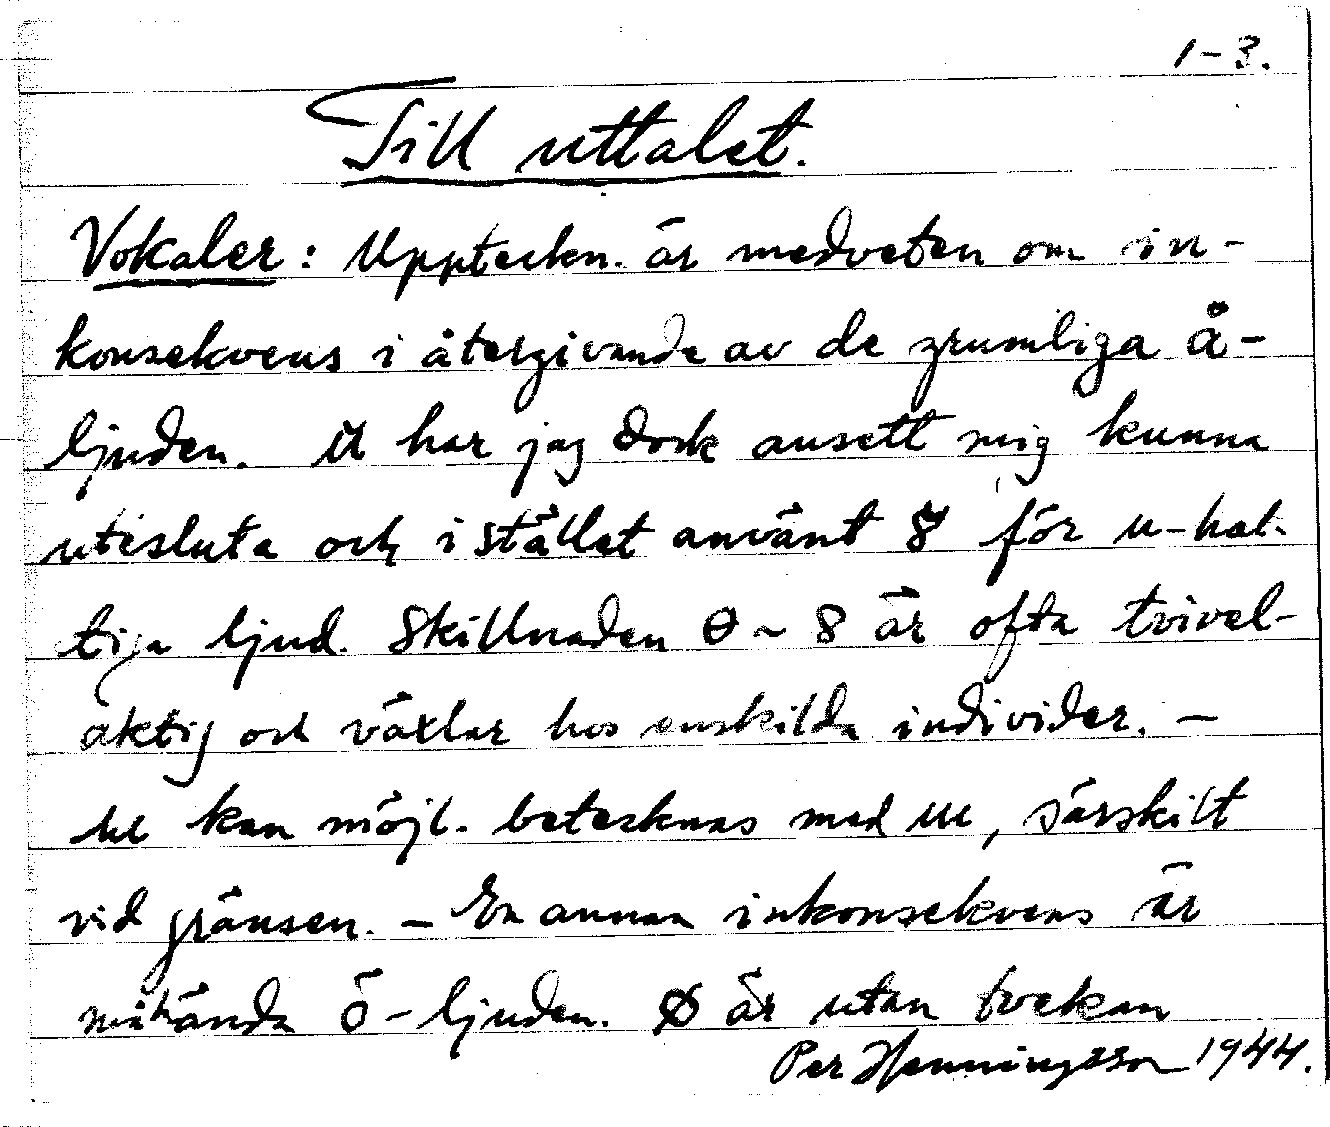 1-3.
Till uttalet.
Vokaler: Uppteckn. är medveten om in-
konsekvens i återgivande av de grumliga å-
ljuden. har jag dock ansett mig kunna
utesluta och i stället använt 8 för u-hal-
tiga ljud. Skillnaden ɵ ~ 8 är ofta tvivel-
aktig och växlar hos enskilda individer. —
kan möjl. betecknas med , särskilt
vid gränsen. — En annan inkonsekvens är
måhända ö-ljuden. Ø är utan tvekan
Per Henningsson 1944.